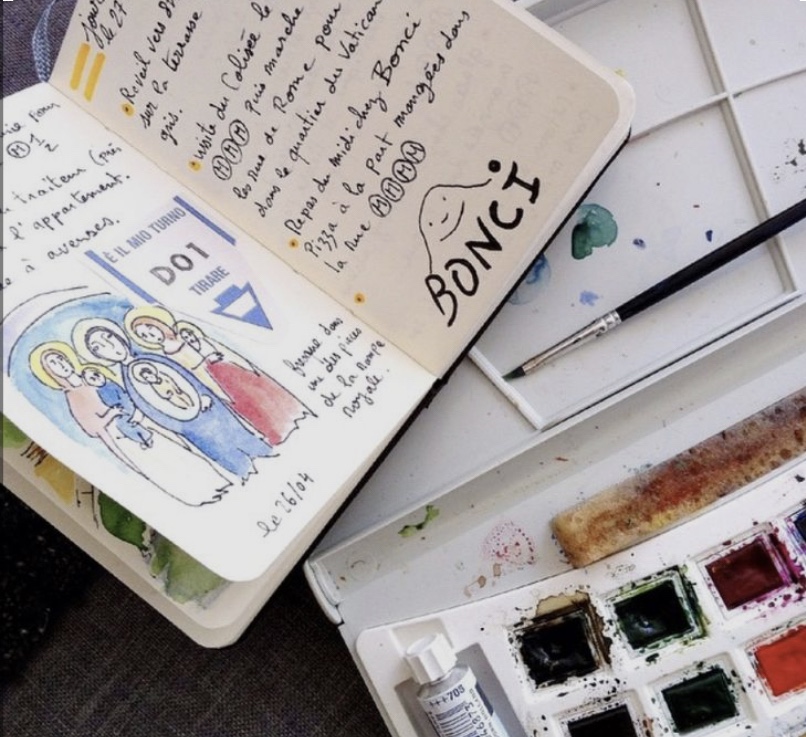 1/2
traiteur (près
l'appartement.
à averses.
È IL MIO TURNO
D01
TIRARE
fresque dans
une des pièces
de la rampe
royale.
le 26/04
jour
le 27
Réveil vers 8
sur la terrasse
gris.
visite du Colisée le
puis marche
les rue de Rome pour
dans le quartier du Vatican
Repas du midi chez Bonci
Pizza à la Part mangées dans
la rue
BONCI
+++708